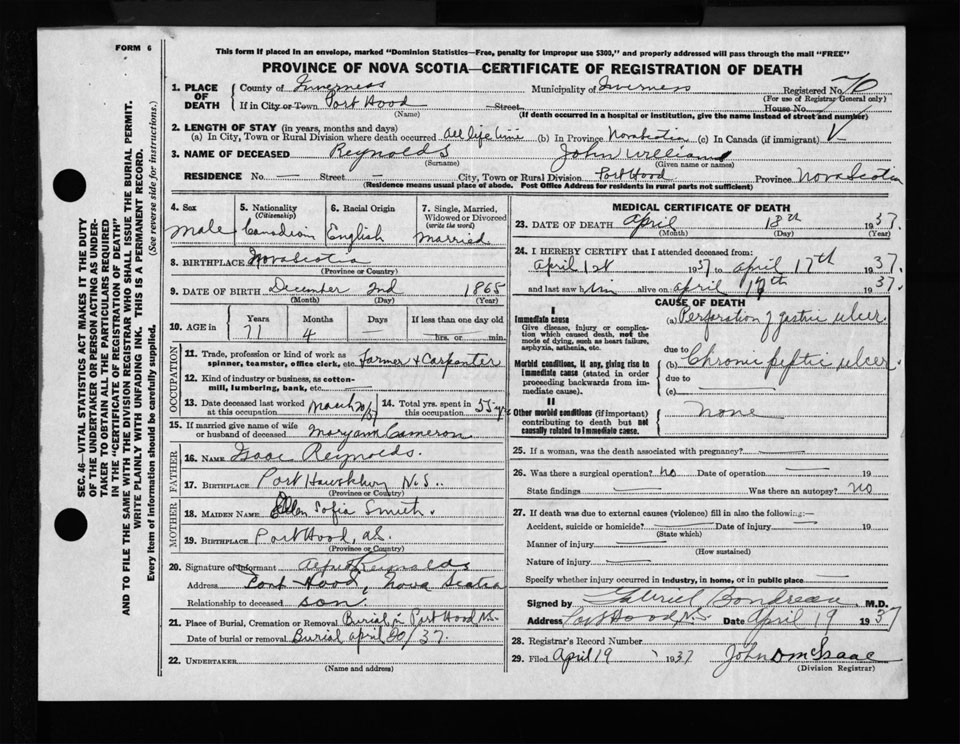 FORM 6
This form if placed in an envelope, marked "Dominion Statistics—Free, penalty for improper use $300," and properly addressed will pass through the mail "FREE"
PROVINCE OF NOVA SCOTIA—CERTIFICATE OF REGISTRATION OF DEATH
SEC. 46—VITAL STATISTICS ACT MAKES IT THE DUTY
OF THE UNDERTAKER OR PERSON ACTING AS UNDER-
TAKER TO OBTAIN ALL THE PARTICULARS REQUIRED
IN THE "CERTIFICATE OF REGISTRATION OF DEATH"
AND TO FILE THE SAME WITH THE DIVISION REGISTRAR WHO SHALL ISSUE THE BURIAL PERMIT.
WRITE PLAINLY WITH UNFADING INK. THIS IS A PERMANENT RECORD.
Every item of information should be carefully supplied. (See reverse side for instructions.)
1. PLACE OF DEATH
County of Inverness Municipality of Inverness Registered No. 70
(For use of Registrar General only)
If in City or Town Port Hood Street House No.
(Name) (If death occurred in a hospital or institution, give the name instead of street and number)
2. LENGTH OF STAY (in years, months and days)
(a) In City, Town or Rural Division where death occurred All life time (b) In Province Nova Scotia (c) In Canada (if immigrant)
3. NAME OF DECEASED Reynolds John William
(Surname) (Given name or names)
RESIDENCE No. — Street — City, Town or Rural Division Port Hood Province Nova Scotia
(Residence means usual place of abode. Post Office Address for residents in rural parts not sufficient)
4. Sex Male
5. Nationality (Citizenship) Canadian
6. Racial Origin English
7. Single, Married, Widowed or Divorced (write the word) Married
8. BIRTHPLACE Nova Scotia
(Province or Country)
9. DATE OF BIRTH December 2nd 1865
(Month) (Day) (Year)
10. AGE in Years Months Days If less than one day old
71 4 — hrs. or min.
OCCUPATION
11. Trade, profession or kind of work as spinner, teamster, office clerk, etc. Farmer & Carpenter
12. Kind of industry or business, as cotton-mill, lumbering, bank, etc.
13. Date deceased last worked at this occupation March 20/37
14. Total yrs. spent in this occupation 55 yrs
15. If married give name of wife or husband of deceased Mary ann Cameron
FATHER
16. NAME Isaac Reynolds.
17. BIRTHPLACE Port Hawksbury N.S.
(Province or Country)
MOTHER
18. MAIDEN NAME Ellen Sofia Smith.
19. BIRTHPLACE Port Hood,
(Province or Country)
20. Signature of Informant Reynolds
Address Port Hood, Nova Scotia
Relationship to deceased son.
21. Place of Burial, Cremation or Removal Burial in Port Hood N.S.
Date of burial or removal Burial april 20/37.
22. UNDERTAKER
(Name and address)
MEDICAL CERTIFICATE OF DEATH
23. DATE OF DEATH April 18th 1937
(Month) (Day) (Year)
24. I HEREBY CERTIFY that I attended deceased from:
April 1st 1937 to april 17th 1937.
and last saw him alive on april 17th 1937.
CAUSE OF DEATH
I
Immediate cause
Give disease, injury or complication which caused death, not the mode of dying, such as heart failure, asphyxia, asthenia, etc.
(a) Perforation of gastric ulcer
due to
Morbid conditions, if any, giving rise to immediate cause (stated in order proceeding backwards from immediate cause).
(b) Chronic peptic ulcer
due to
(c)
II
Other morbid conditions (if important) contributing to death but not causally related to immediate cause.
none
25. If a woman, was the death associated with pregnancy?
26. Was there a surgical operation? no Date of operation 19
State findings Was there an autopsy? no
27. If death was due to external causes (violence) fill in also the following:—
Accident, suicide or homicide? Date of injury 19
(State which)
Manner of injury
(How sustained)
Nature of injury
Specify whether injury occurred in industry, in home, or in public place
Signed by Gabriel Boudreau M.D.
Address Port Hood N.S. Date April 19 1937
28. Registrar's Record Number
29. Filed April 19 1937 John D McIsaac
(Division Registrar)